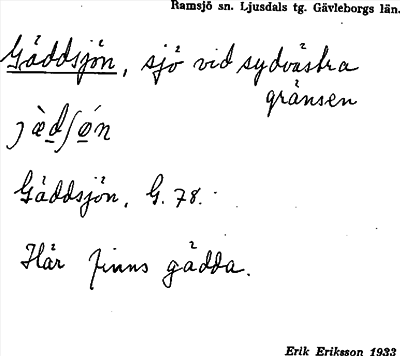 Ramsjö sn. Ljusdals tg. Gävleborgs län.
Gäddsjön, sjö vid sydvästra
gränsen
jæ̀dʃǿn
Gäddsjön, G. 78.
Här finns gädda.
Erik Eriksson 1933